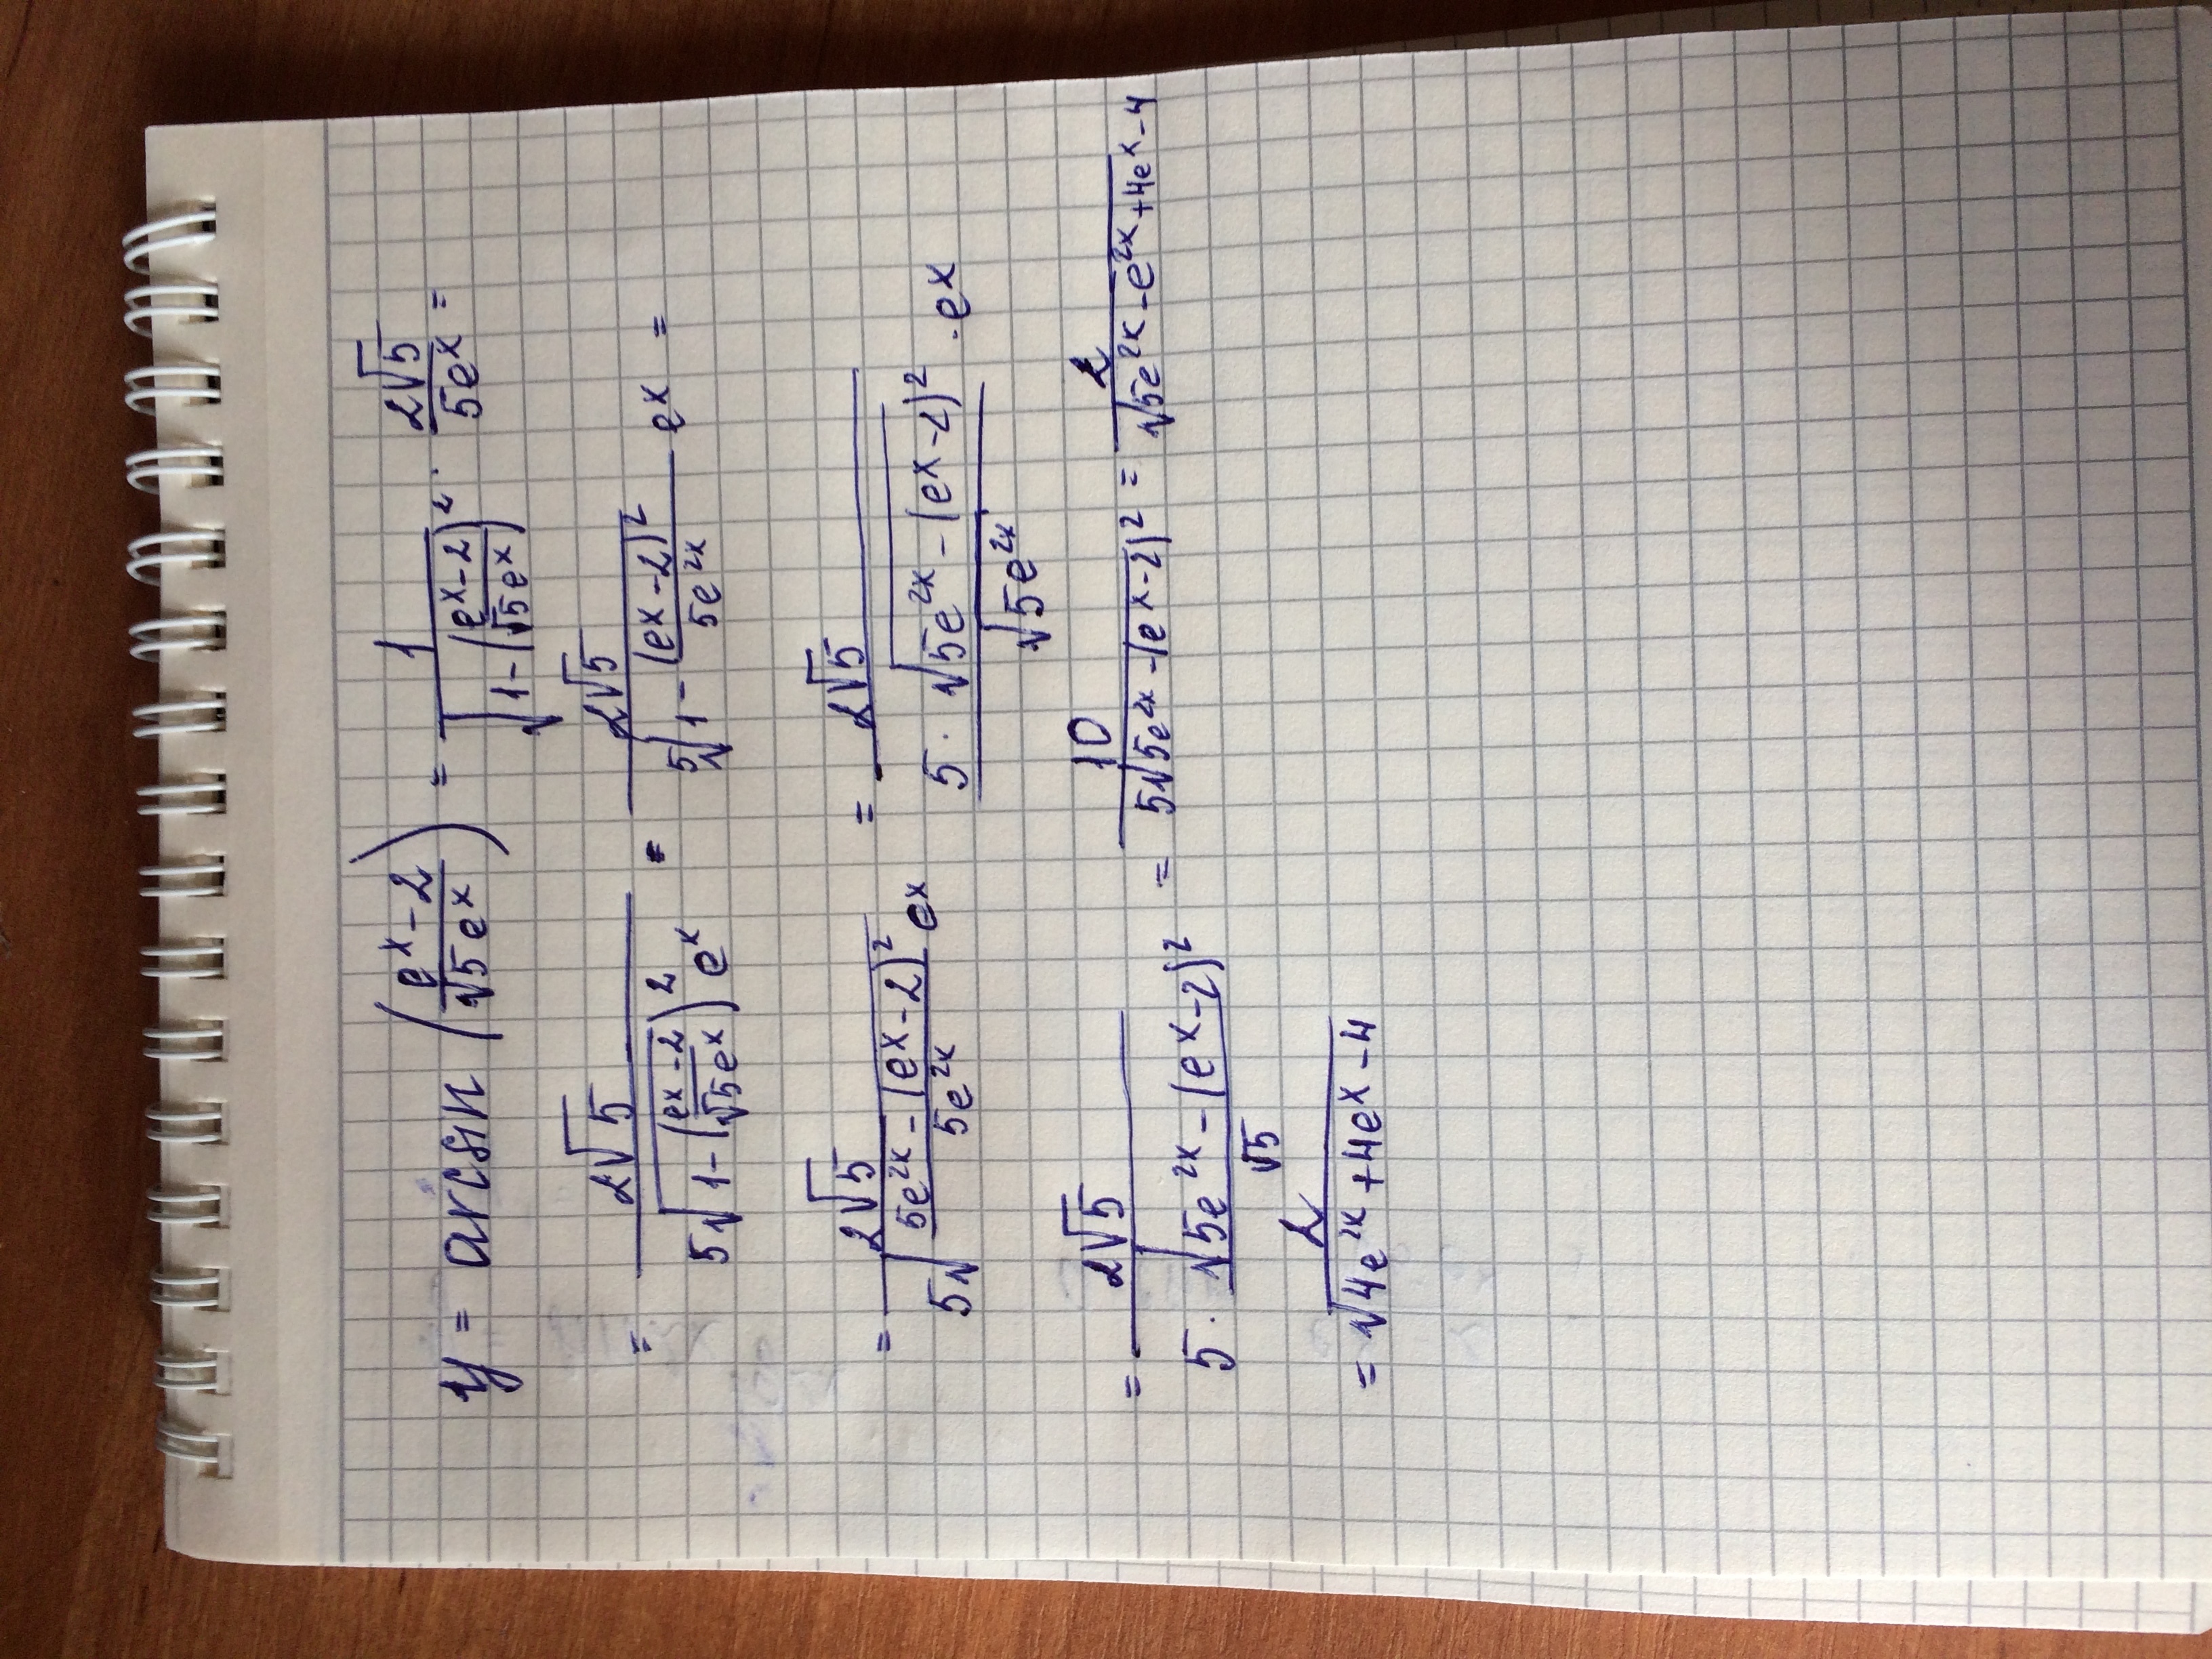 y = arcsin ( (e^x - 2) / (√5 e^x) ) = 1 / √(1 - ((e^x - 2) / (√5 e^x))^2) · 2√5 / (5e^x) =
= 2√5 / (5√(1 - ((e^x - 2) / (√5 e^x))^2) e^x) = 2√5 / (5√(1 - (e^x - 2)^2 / (5e^2x)) e^x) =
= 2√5 / (5√((5e^2x - (e^x - 2)^2) / (5e^2x)) e^x) = 2√5 / (5 · √(5e^2x - (e^x - 2)^2) / √(5e^2x) · e^x)
= 2√5 / (5 · √(5e^2x - (e^x - 2)^2) / √5) = 10 / (5√(5e^2x - (e^x - 2)^2)) = 2 / √(5e^2x - e^2x + 4e^x - 4)
= 2 / √(4e^2x + 4e^x - 4)